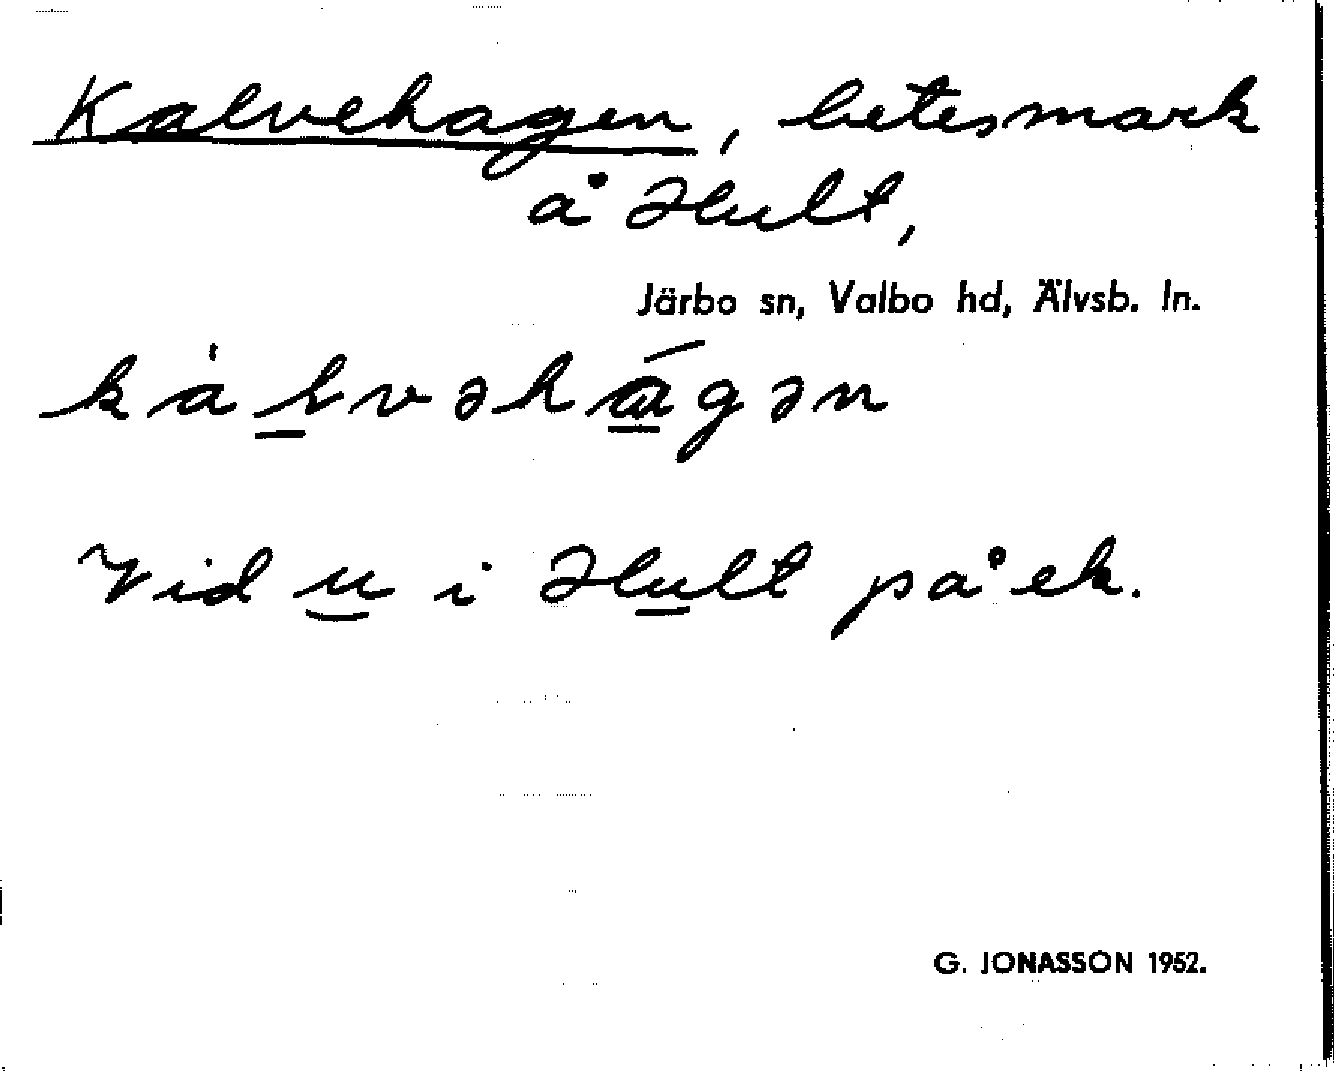 Kalvehagen, betesmark
å Hult,
Järbo sn, Valbo hd, Älvsb. ln.
kàɭvəhɑ́gən
Vid u i Hult på ek.
G. JONASSON 1952.